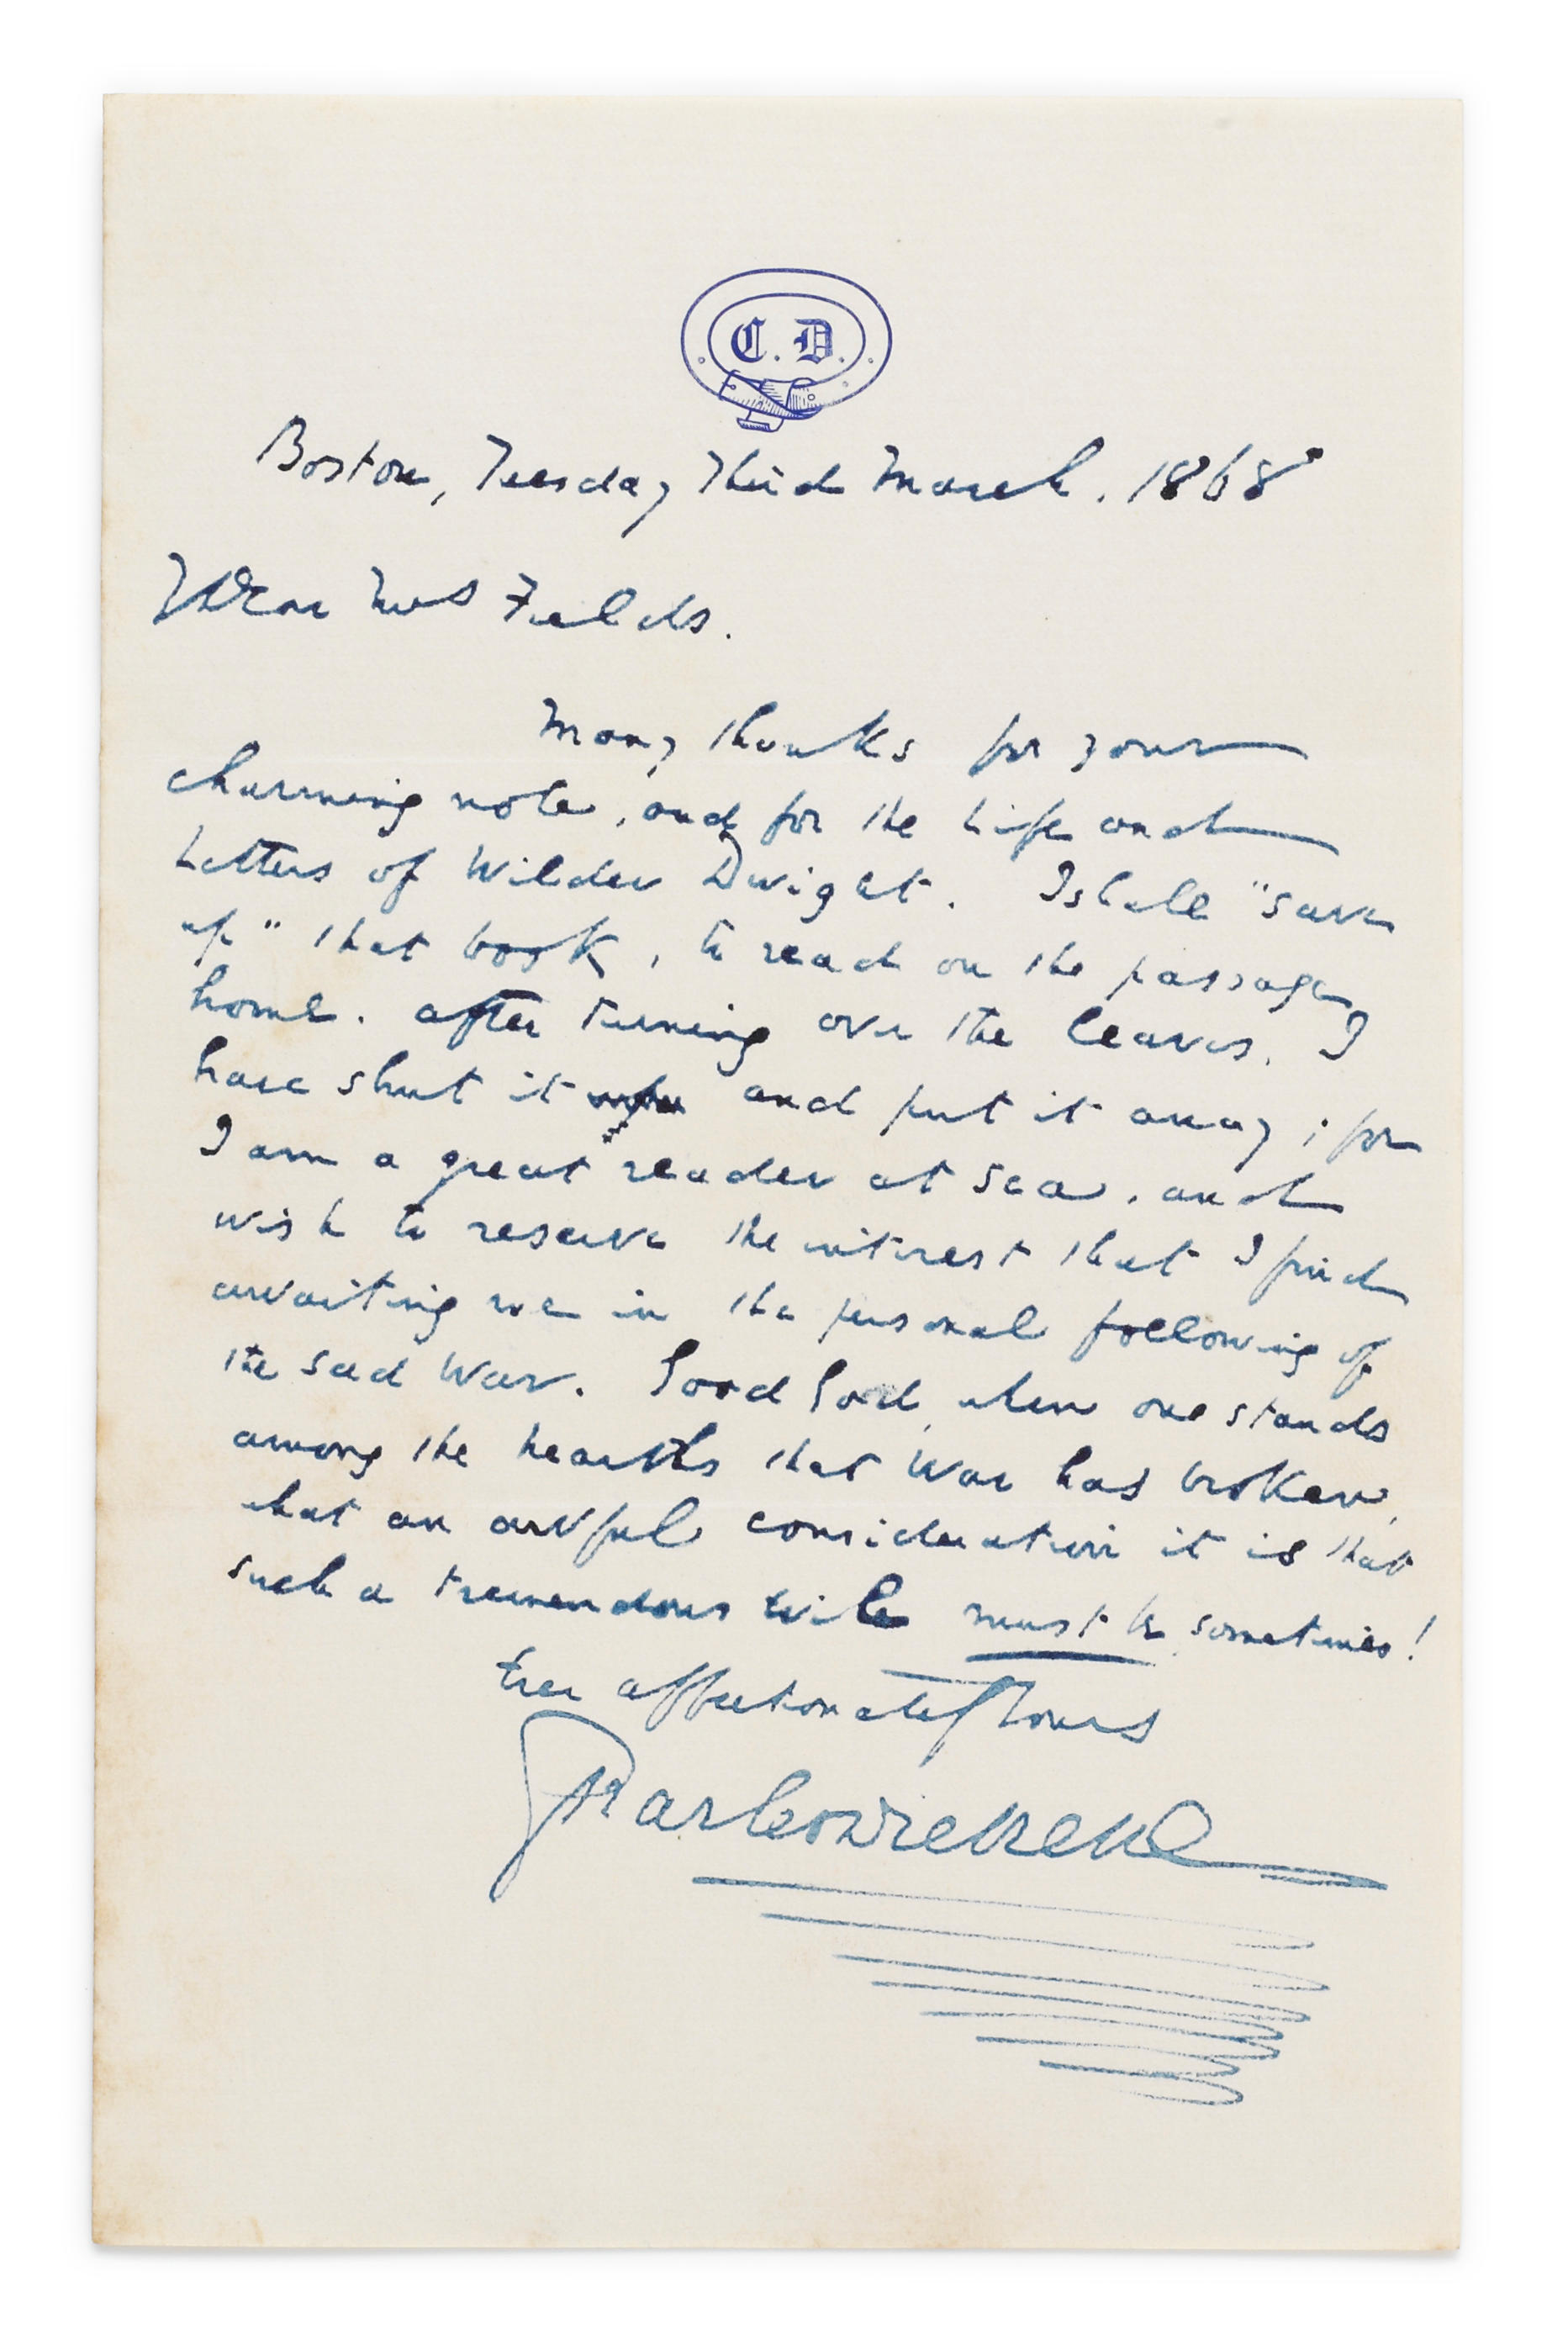 C. D.
Boston, Tuesday Third March. 1868
My Dear Mrs Fields.
Many thanks for your
charming note, and for the Life and
Letters of Wilder Dwight. I shall "save
up" that book, to read on the passage
home. After turning over the leaves, I
have shut it and put it away; for
I am a great reader at sea, and
wish to reserve the interest that I find
awaiting me in the personal following of
the sad War. Good God, when one stands
among the hearths that War has broken,
what an awful consideration it is that
such a tremendous evil must be sometimes!
Ever affectionately Yours
Charles Dickens